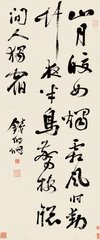 山月皎如燭霜風時動
竹夜半鳥驚棲牕
間人獨宿
錢伯坰